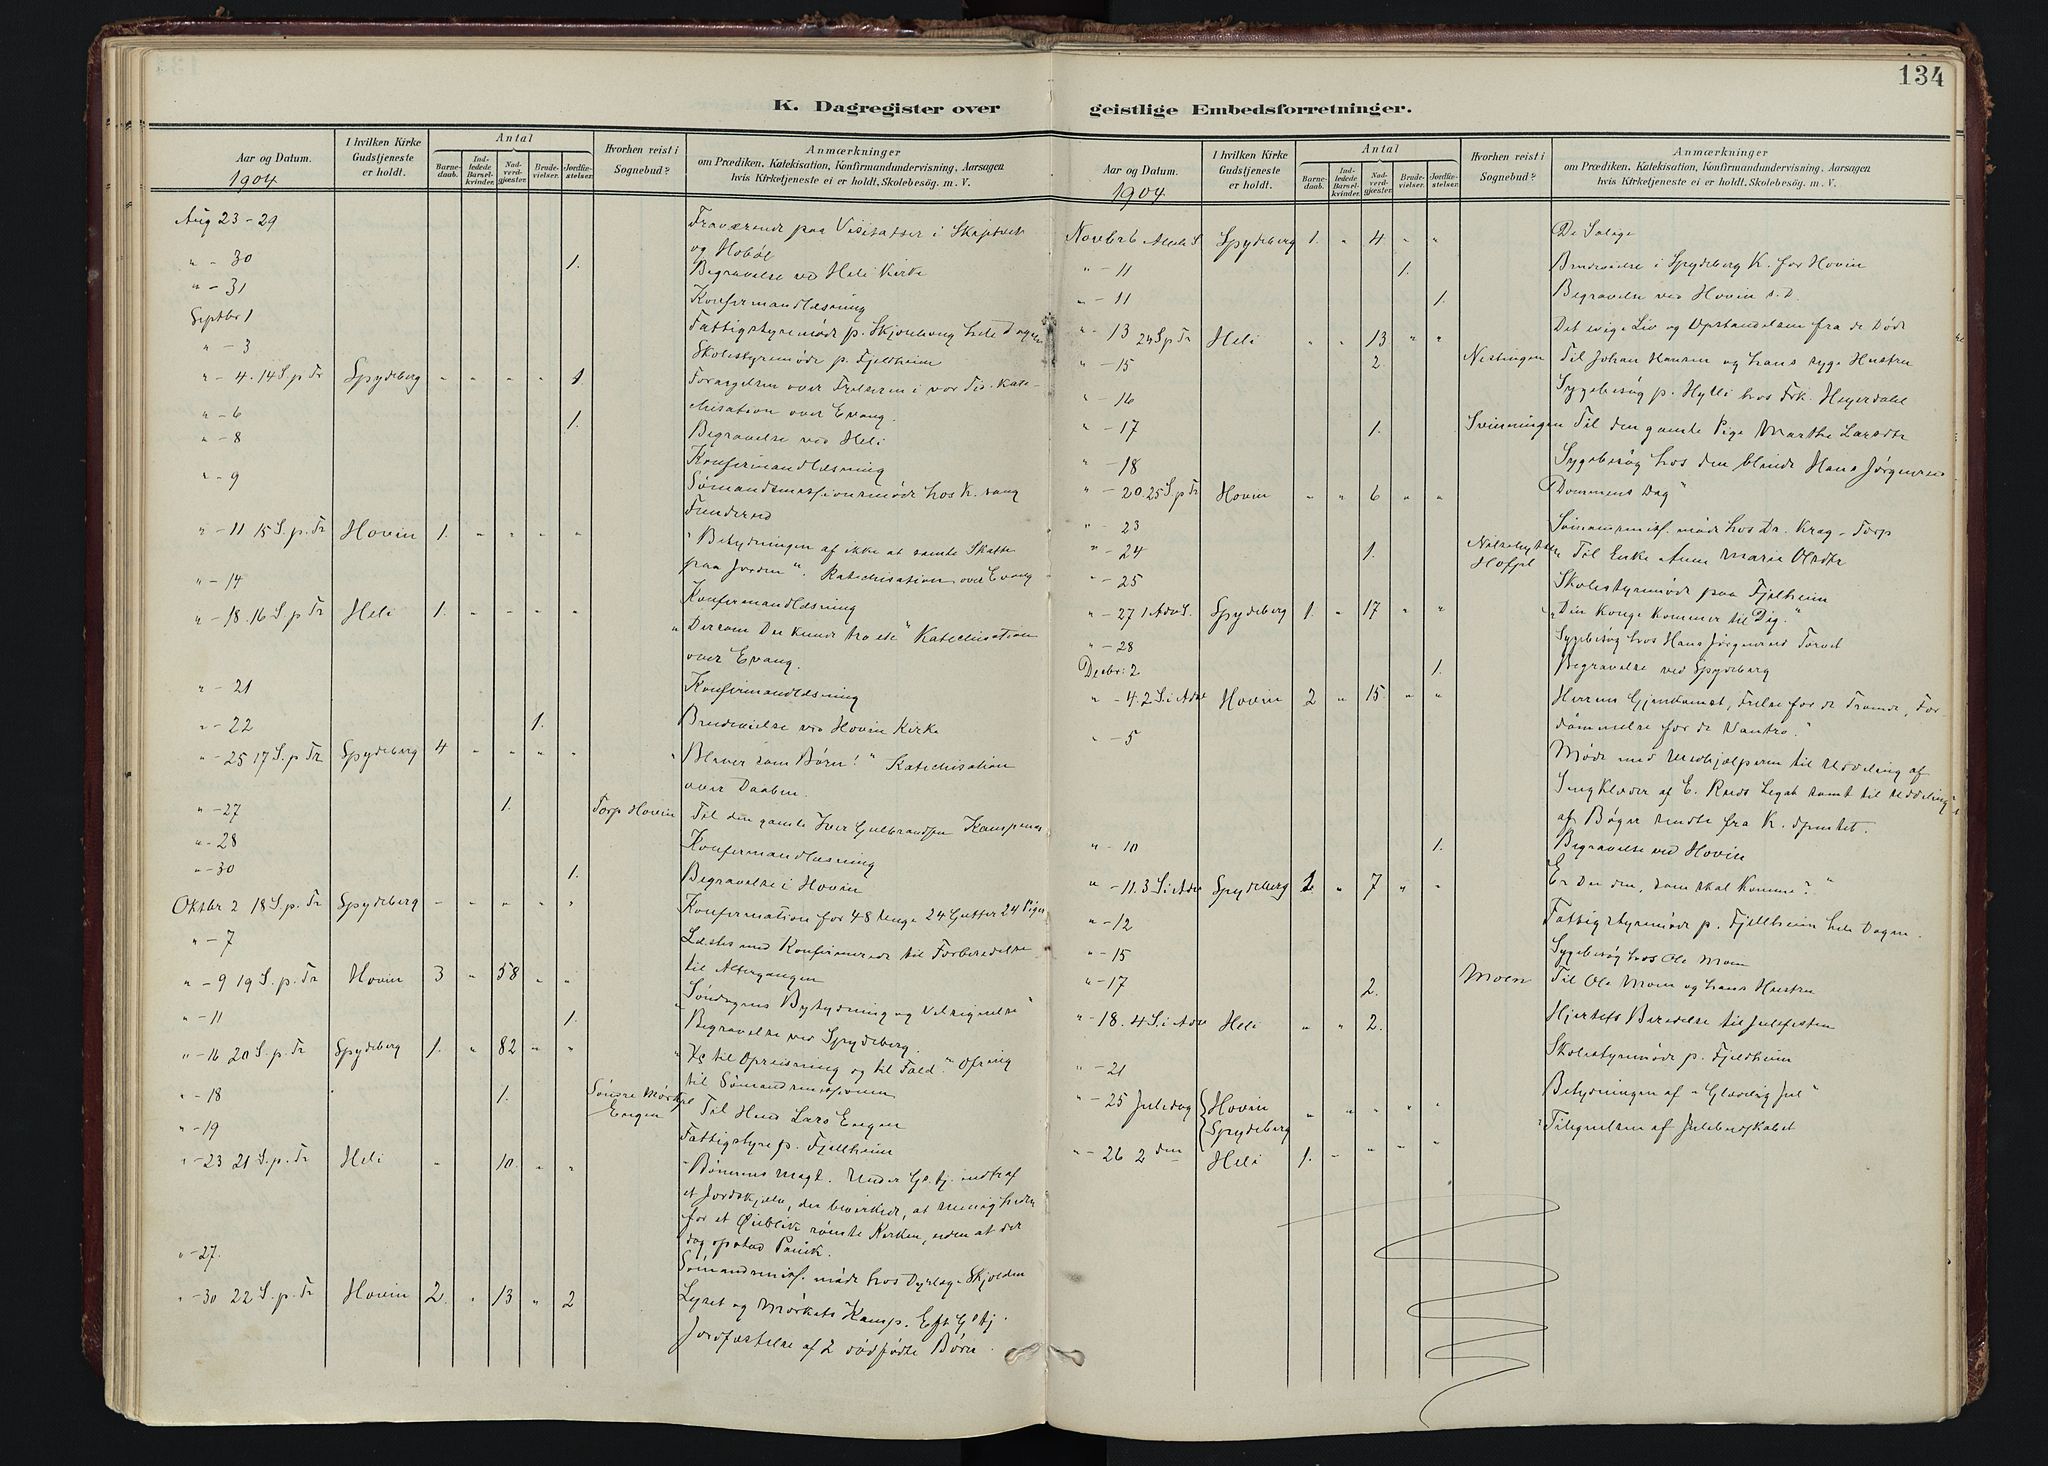 134
K. Dagregister over
Aar og Datum.
1904
I hvilken Kirke Gudstjeneste er holdt.
Antal
Barne-daab.
Ind-ledede Barsel-kvinder.
Nad-verd-gjæster.
Brude-vielser.
Jordfæ-stelser.
Hvorhen reist i Sognebud?
Anmærkninger
om Prædiken, Katekisation, Konfirmandundervisning, Aarsagen
hvis Kirketjeneste ei er holdt, Skolebesøg. m. V.
Aug 23-29 Fraværende paa Visitatser i Skiptvet
og Hobøl
" - 30 1. Begravelse ved Heli Kirke
" - 31 Konfirmandlæsning
Septbr 1 Fattigstyremøde p. hele Dagen
" - 3 Skolestyremøde p. Fjeldheim
" - 4. 14 S. p. Tr Spydeberg " " " " 1 Forargelsen over Frelseren i vor Tid. Kate-
chisation over Evang.
" - 6 1. Begravelse ved Heli
" - 8 Konfirmandlæsning
" - 9 Sømandsmissionsmøde hos K. sang
" - 11 15 S. p. Tr Hovin 1. " " " " "Betydningen af ikke at samle Skatte
paa Jorden". Katechisation over Evang
" - 14 Konfirmandlæsning
" - 18. 16 S. p. Tr Heli 1. " " " " "Dersom Du kunde tro etc" Katechisation
over Evang.
" - 21 Konfirmandlæsning
" - 22 1. Brudevielse ved Hovin Kirke
" - 25 17 S. p. Tr Spydeberg 4 " " " " "Bliver som Børn!" Katechisation
over Daaben.
" - 27 1. Torp Hovin Til den gamle Iver Gulbrandsen
" - 28 Konfirmandlæsning
" - 30 1. Begravelse i Hovin
Oktbr 2 18 S. p. Tr Spydeberg " " " " " Konfirmation for 48 Unge 24 Gutter 24 Piger
" - 7 Læste med Konfirmerede til Forberedelse
til Altergangen
" - 9 19 S. p. Tr Hovin 3 " 58 " " "Søndagens Betydning og Velsignelse"
" - 11 1. Begravelse ved Spydeberg.
" - 16 20 S. p. Tr Spydeberg 1. " 82 " " "Xs til Opreisning og til Fald." Ofring
til Sømandsmissionen
" - 18 1. Søndre Mørk pl Engen Til Hmd Lars Engen
" - 19 Fattigstyre p. Fjellheim
" - 23 21 S. p. Tr Heli " " 10. " " "Bønnens Magt. Under Gstj. indtraf
et Jordskjælv, der bevirkede, at Menigheden
for et Øieblik rømte Kirken, uden at der
dog opstod Panik.
" - 27. Sømandsmiss. møde hos Dyrlæge Skjolden
" - 30 22 S. p. Tr Hovin 2. " 13 " 2 Lyset og Mørkets Kamp. Eft Gstj.
Jordfæstelse af 2 dødfødte Børn.
geistlige Embedsforretninger.
Aar og Datum.
1904.
I hvilken Kirke Gudstjeneste er holdt.
Antal
Barne-daab.
Ind-ledede Barsel-kvinder.
Nad-verd-gjæster.
Brude-vielser.
Jordfæ-stelser.
Hvorhen reist i Sognebud?
Anmærkninger
om Prædiken, Katekisation, Konfirmandundervisning, Aarsagen
hvis Kirketjeneste ei er holdt, Skolebesøg. m. V.
Novbr 6 Spydeberg 1. " 4 " " De Salige
" - 11 1. Brudevielse i Spydeberg K. for Hovin
" - 11 1. Begravelse ved Hovin s. D.
" - 13 24 S p Tr Heli " " 13 " " Det evige Liv og Opstandelsen fra de Døde
" - 15 2. Til Johan Hansen og hans syge Hustru
" - 16 Sygebesøg p. Hylli hos Frk. Heyerdahl
" - 17 1. Svinningen Til den gamle Pige Marthe Larsdtr
" - 18 Sygebesøg hos den blinde Hans Jørgensen
" - 20. 25 S. p Tr Hovin " " 6 " " Dommens Dag"
" - 23 Sømansmiss. møde hos Dr. Krag - Torp
" - 24 1. Til Enke Anne Marie Olsdtr
" - 25 Skolestyremøde paa Fjelheim
" - 27 1 Adv S. Spydeberg 1. " 17 " " "Din Konge kommer til Dig."
" - 28 Sygebesøg hos Hans Jørgensen Torvet
Decbr: 2 1. Begravelse ved Spydeberg
" - 4. 2 S. i Adv Hovin 2 " 15. " " Herrens Gjenkomst, Frelse for de Troende, For-
dømmelse for de Vantro."
" - 5 Møde med Medhjælperne til Uddeling af
af E. Legat samt til Uddeling
af Bøger sendte fra K. dptmtet.
" - 10 1. Begravelse ved Hovin
" - 11. 3 S. i Adv Spydeberg 1 " 7 " " Er Du den, som skal komme?"
" - 12 Fattigstyremøde p. Fjellheim hele Dagen.
" - 15 Sygebesøg hos Ole Moen
" - 17 2. Moen Til Ole Moen og hans Hustru
" - 18. 4 S. i Adv Heli " " 2. Hjertets Beredelse til Julefesten
" - 21 Skolestyremøde p. Fjeldheim
" - 25 Juledag Hovin " " " " " Betydningen af "Glædelig Jul"
Spydeberg
" - 26 2 den Heli 1. " " " " "Tilegnelsen af Julebudskabet